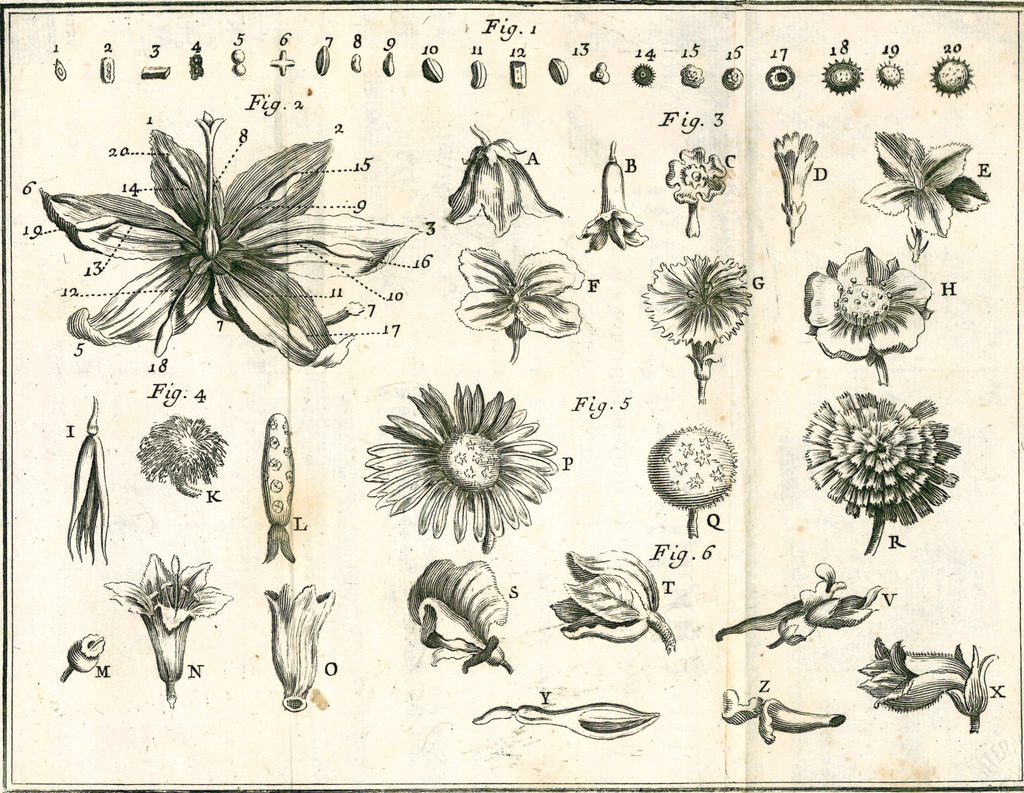 Fig. 1
1 2 3 4 5 6 7 8 9 10 11 12 13 14 15 16 17 18 19 20
Fig. 2
Fig. 3
1 8 2
20 15
14 9
6 3
19 16
13 10
12 11
7 7
5 17
18
A B C D E
F G H
Fig. 4
Fig. 5
I K L
P Q R
Fig. 6
M N O
S T V
X
Y Z